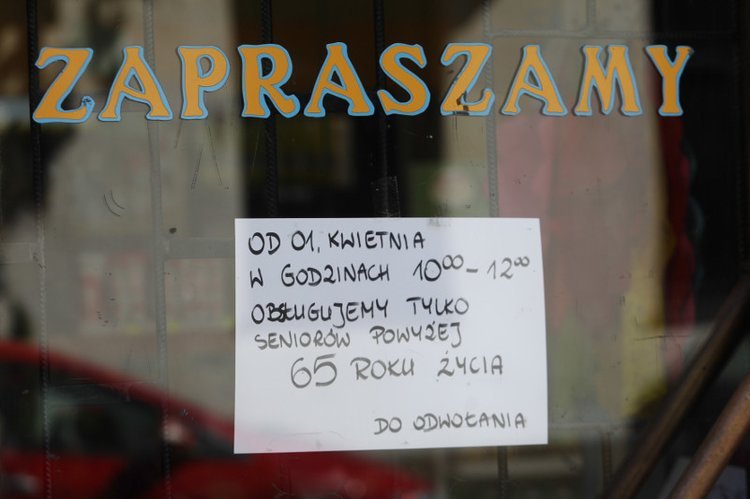 ZAPRASZAMY
OD 01. KWIETNIA
W GODZINACH 10⁰⁰-12⁰⁰
OBSŁUGUJEMY TYLKO
SENIORÓW POWYŻEJ
65 ROKU ŻYCIA
DO ODWOŁANIA